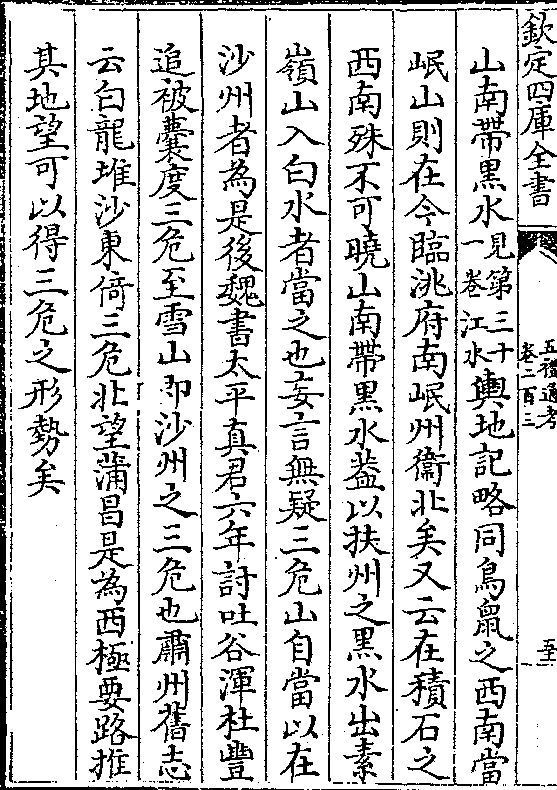 欽定四庫全書
五禮通考
卷二百三
至
山南帶黑水見第三十一卷江水輿地記略同鳥鼠之西南當
岷山則在今臨洮府南岷州衛北矣又云在積石之
西南殊不可曉山南帶黑水葢以扶州之黑水出素
嶺山入白水者當之也妄言無疑三危山自當以在
沙州者為是後魏書太平真君六年討吐谷渾杜豐
追被囊度三危至雪山即沙州之三危也肅州舊志
云白龍堆沙東倚三危北望蒲昌是為西極要路推
其地望可以得三危之形勢矣